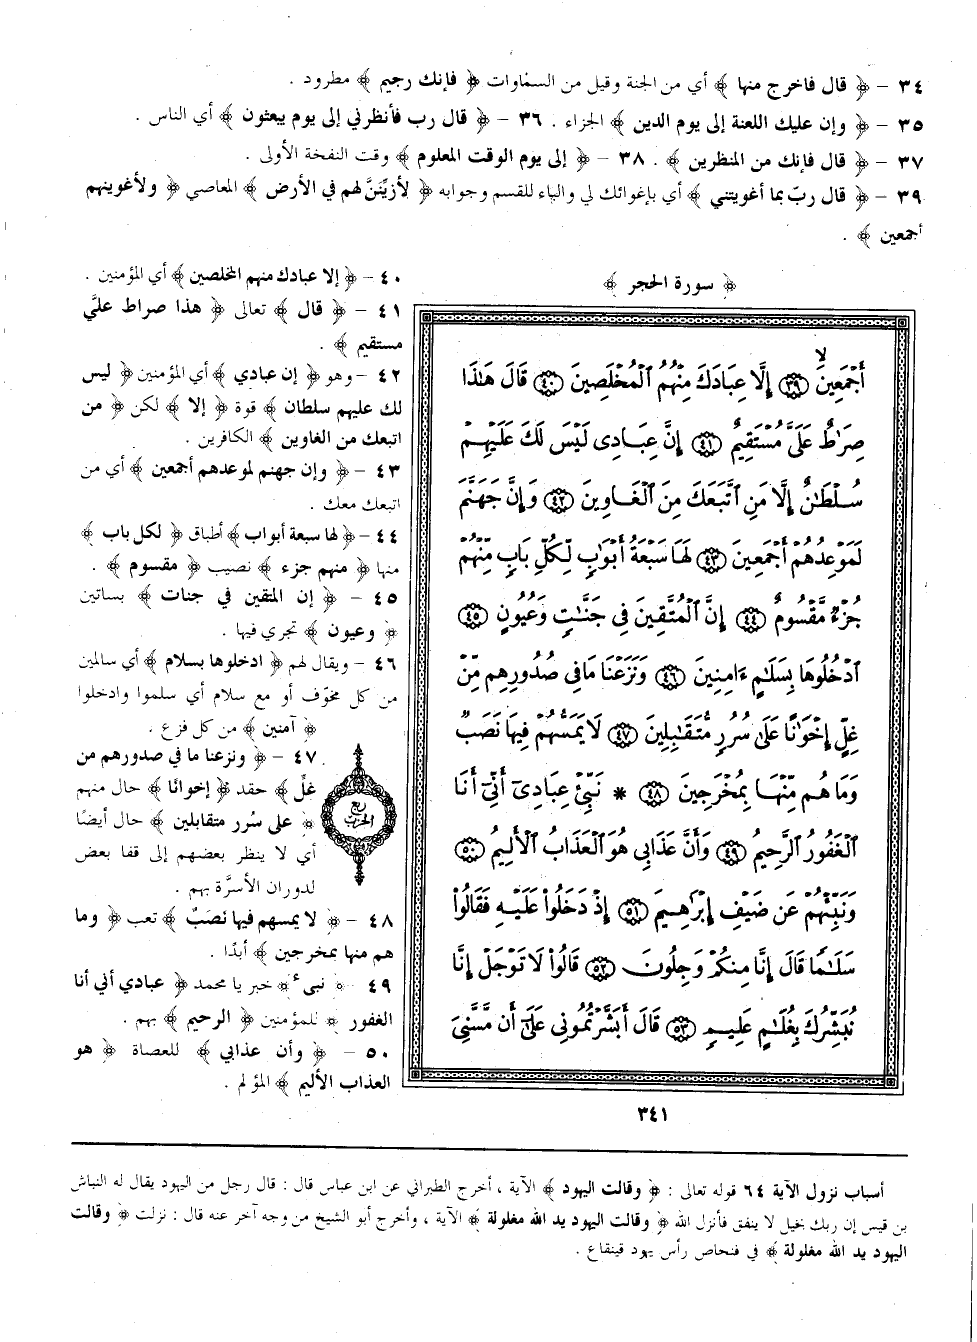 ٣٤ - ﴿ قال فاخرج منها ﴾ أي من الجنة وقيل من السماوات ﴿ فإنك رجيم ﴾ مطرود .
٣٥ - ﴿ وإن عليك اللعنة إلى يوم الدين ﴾ الجزاء . ٣٦ - ﴿ قال رب فأنظرني إلى يوم يبعثون ﴾ أي الناس .
٣٧ - ﴿ قال فإنك من المنظرين ﴾ . ٣٨ - ﴿ إلى يوم الوقت المعلوم ﴾ وقت النفخة الأولى .
٣٩ - ﴿ قال ربّ بما أغويتني ﴾ أي بإغوائك لي والباء للقسم وجوابه ﴿ لأزيِّننَّ لهم في الأرض ﴾ المعاصي ﴿ ولأغوينهم
أجمعين ﴾ .
﴿ سورة الحجر ﴾
أَجْمَعِينَ ﴿٣٩﴾ إِلَّا عِبَادَكَ مِنْهُمُ ٱلْمُخْلَصِينَ ﴿٤٠﴾ قَالَ هَٰذَا
صِرَٰطٌ عَلَىَّ مُسْتَقِيمٌ ﴿٤١﴾ إِنَّ عِبَادِى لَيْسَ لَكَ عَلَيْهِمْ
سُلْطَٰنٌ إِلَّا مَنِ ٱتَّبَعَكَ مِنَ ٱلْغَاوِينَ ﴿٤٢﴾ وَإِنَّ جَهَنَّمَ
لَمَوْعِدُهُمْ أَجْمَعِينَ ﴿٤٣﴾ لَهَا سَبْعَةُ أَبْوَٰبٍ لِّكُلِّ بَابٍ مِّنْهُمْ
جُزْءٌ مَّقْسُومٌ ﴿٤٤﴾ إِنَّ ٱلْمُتَّقِينَ فِى جَنَّٰتٍ وَعُيُونٍ ﴿٤٥﴾
ٱدْخُلُوهَا بِسَلَٰمٍ ءَامِنِينَ ﴿٤٦﴾ وَنَزَعْنَا مَا فِى صُدُورِهِم مِّنْ
غِلٍّ إِخْوَٰنًا عَلَىٰ سُرُرٍ مُّتَقَٰبِلِينَ ﴿٤٧﴾ لَا يَمَسُّهُمْ فِيهَا نَصَبٌ
وَمَا هُم مِّنْهَا بِمُخْرَجِينَ ﴿٤٨﴾ * نَبِّئْ عِبَادِىٓ أَنِّىٓ أَنَا
ٱلْغَفُورُ ٱلرَّحِيمُ ﴿٤٩﴾ وَأَنَّ عَذَابِى هُوَ ٱلْعَذَابُ ٱلْأَلِيمُ ﴿٥٠﴾
وَنَبِّئْهُمْ عَن ضَيْفِ إِبْرَٰهِيمَ ﴿٥١﴾ إِذْ دَخَلُوا۟ عَلَيْهِ فَقَالُوا۟
سَلَٰمًا قَالَ إِنَّا مِنكُمْ وَجِلُونَ ﴿٥٢﴾ قَالُوا۟ لَا تَوْجَلْ إِنَّا
نُبَشِّرُكَ بِغُلَٰمٍ عَلِيمٍ ﴿٥٣﴾ قَالَ أَبَشَّرْتُمُونِى عَلَىٰٓ أَن مَّسَّنِىَ
٣٤١
٤٠ - ﴿ إلا عبادك منهم المخلصين ﴾ أي المؤمنين .
٤١ - ﴿ قال ﴾ تعالى ﴿ هذا صراط عليَّ
مستقيم ﴾ .
٤٢ - وهو ﴿ إن عبادي ﴾ أي المؤمنين ﴿ ليس
لك عليهم سلطان ﴾ قوة ﴿ إلا ﴾ لكن ﴿ من
اتبعك من الغاوين ﴾ الكافرين .
٤٣ - ﴿ وإن جهنم لموعدهم أجمعين ﴾ أي من
اتبعك معك .
٤٤ - ﴿ لها سبعة أبواب ﴾ أطباق ﴿ لكل باب ﴾
منها ﴿ منهم جزء ﴾ نصيب ﴿ مقسوم ﴾ .
٤٥ - ﴿ إن المتقين في جنات ﴾ بساتين
﴿ وعيون ﴾ تجري فيها .
٤٦ - ويقال لهم ﴿ ادخلوها بسلام ﴾ أي سالمين
من كل مخوّف أو مع سلام أي سلموا وادخلوا
﴿ آمنين ﴾ من كل فزع .
٤٧ - ﴿ ونزعنا ما في صدورهم من
غلٍّ ﴾ حقد ﴿ إخوانًا ﴾ حال منهم
﴿ على سُرر متقابلين ﴾ حال أيضًا
أي لا ينظر بعضهم إلى قفا بعض
لدوران الأسرَّة بهم .
ربع
الحزب
٤٨ - ﴿ لا يمسهم فيها نصبٌ ﴾ تعب ﴿ وما
هم منها بمخرجين ﴾ أبدًا .
٤٩ ﴿ نبىء ﴾ خبر يا محمد ﴿ عبادي أني أنا
الغفور ﴾ للمؤمنين ﴿ الرحيم ﴾ بهم .
٥٠ - ﴿ وأن عذابي ﴾ للعصاة ﴿ هو
العذاب الأليم ﴾ المؤلم .
أسباب نزول الآية ٦٤ قوله تعالى : ﴿ وقالت اليهود ﴾ الآية ، أخرج الطبراني عن ابن عباس قال : قال رجل من اليهود يقال له النباش
بن قيس إن ربك بخيل لا ينفق فأنزل الله ﴿ وقالت اليهود يد الله مغلولة ﴾ الآية ، وأخرج أبو الشيخ من وجه آخر عنه قال : نزلت ﴿ وقالت
اليهود يد الله مغلولة ﴾ في فنحاص رأس يهود قينقاع .